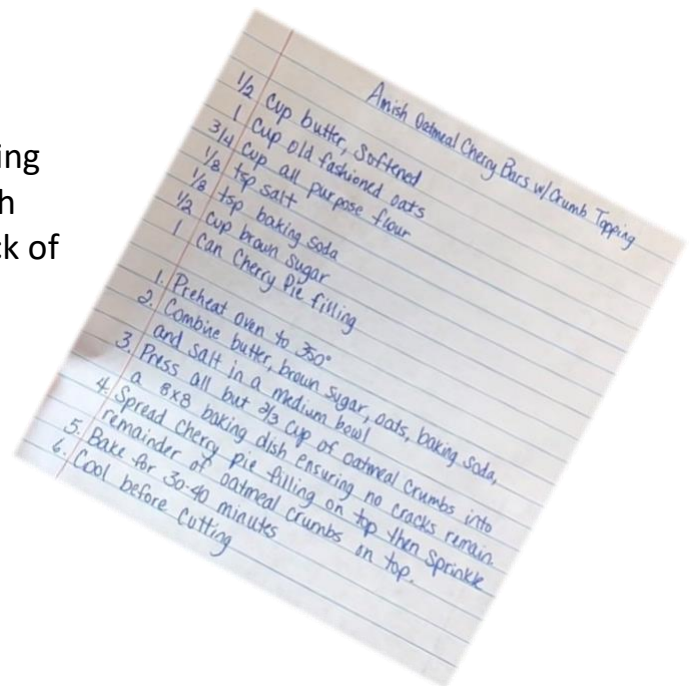 ing
h
ck of
Amish Oatmeal Cherry Bars w/ Crumb Topping
1/2 Cup butter, Softened
1 Cup old fashioned oats
3/4 Cup all purpose flour
1/8 tsp salt
1/8 tsp baking soda
1/2 cup brown sugar
1 can Cherry Pie filling
1. Preheat oven to 350°
2. Combine butter, brown sugar, oats, baking soda,
and salt in a medium bowl
3. Press all but 2/3 cup of oatmeal crumbs into
a 8x8 baking dish ensuring no cracks remain.
4. Spread cherry pie filling on top then sprinkle
remainder of oatmeal crumbs on top.
5. Bake for 30-40 minutes
6. Cool before cutting